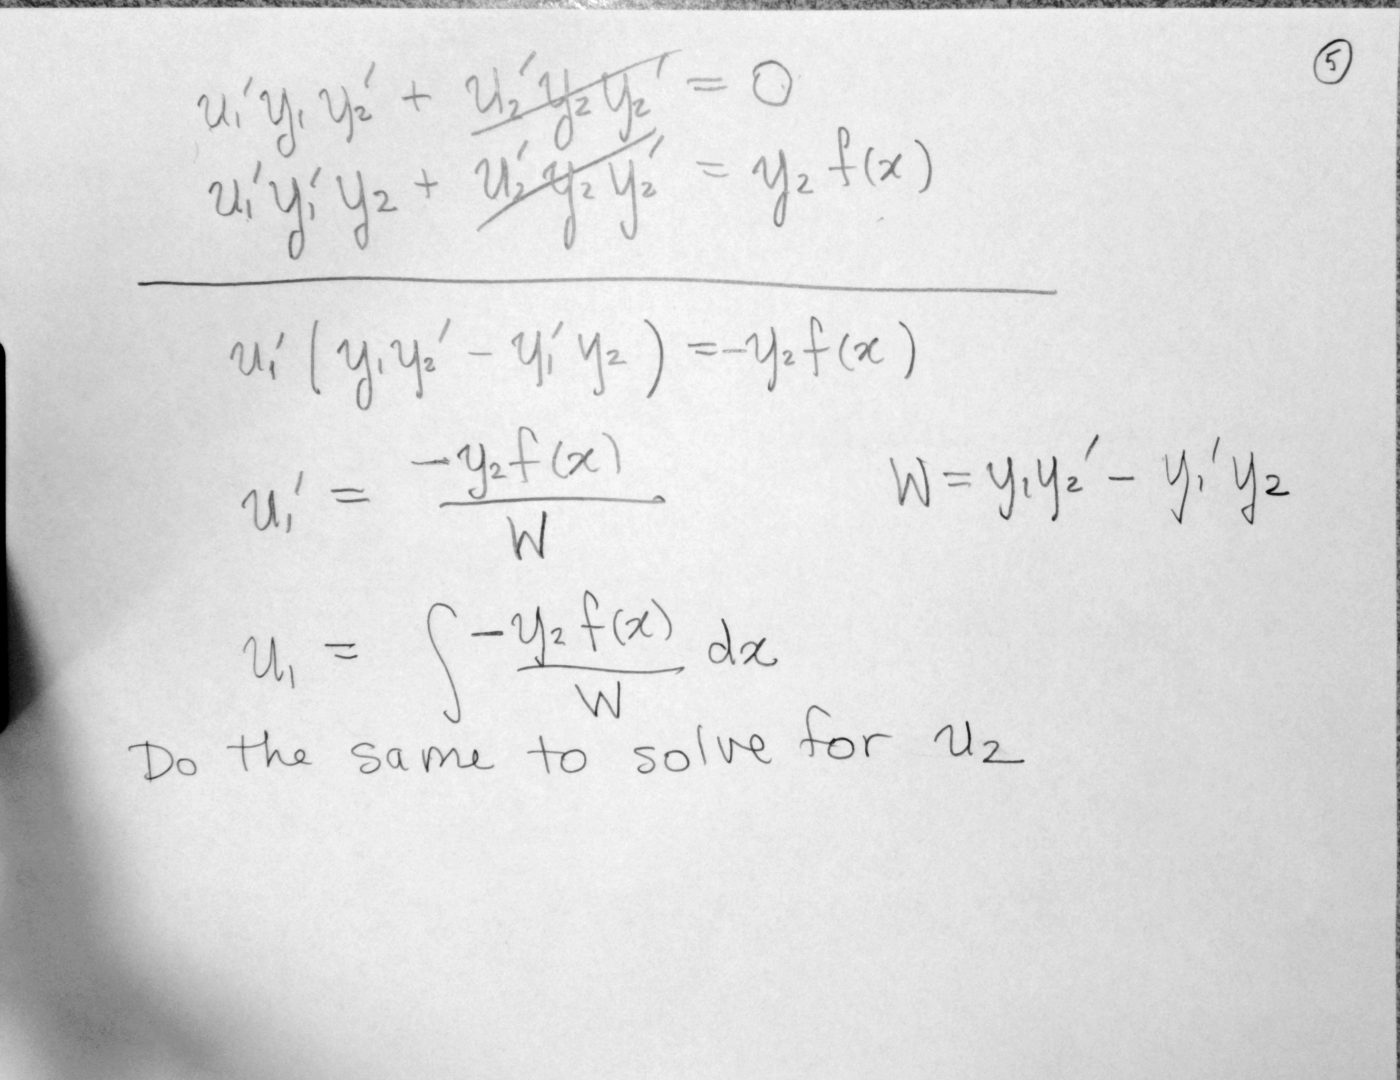 ⑤
u₁'y₁y₂' + u₂'y₂y₂' = 0
u₁'y₁'y₂ + u₂'y₂y₂' = y₂ f(x)
u₁'(y₁y₂' - y₁'y₂) = -y₂f(x)
u₁' = -y₂f(x) / W    W = y₁y₂' - y₁'y₂
u₁ = ∫ -y₂ f(x) / W dx
Do the same to solve for u₂